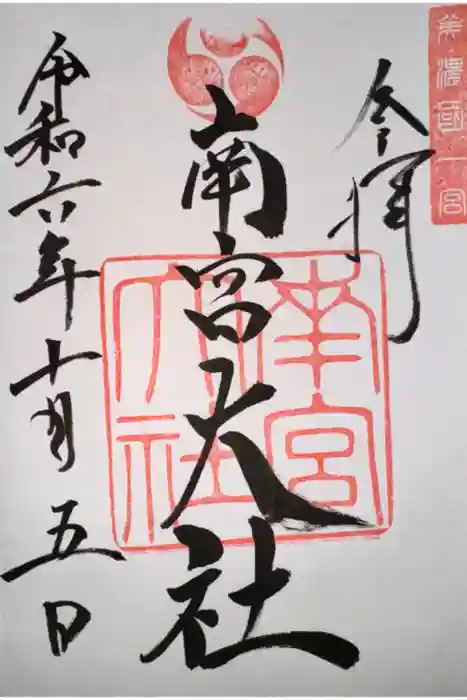 美濃國一宮
参拝
南宮大社
南宮大社
令和六年十月五日